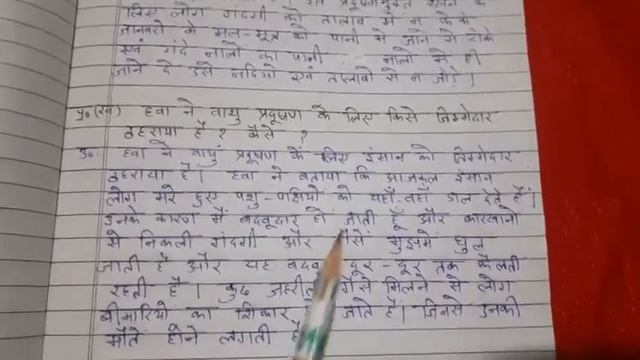 लिए लोग गंदगी को तालाब में न फेंके
जानवरो के मल-मूत्र को पानी में जाने से रोके
एवं गंदे नालो का पानी नालो में ही
जाने दे उसे नदियो एवं तालाबो से न जोड़े।
प्र० (ख) हवा ने वायु प्रदूषण के लिए किसे जिम्मेदार
ठहराया है? कैसे ?
उ० हवा ने वायु प्रदूषण के लिए इंसान को जिम्मेदार
ठहराया है। हवा ने बताया कि आजकल इंसान
लोग मरे हुए पशु-पक्षियो को यहाँ-वहाँ डाल देते हैं।
उनके कारण मैं बदबूदार हो जाती हूँ और कारखानो
से निकली गंदगी और मुझमे घुल
जाती है और यह दूर-दूर तक फैलती
रहती है। कुछ मिलने से लोग
बीमारियो का शिकार जाते है। जिनसे उनकी
मौते होने लगती